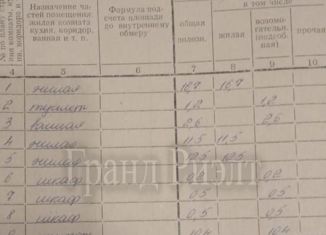 Назначение ча-
стей помещения:
жилая комната
кухня, коридор,
ванная и т. п.
Формула под-
счета площади
по внутреннему
обмеру
в том числе
общая
полезн.
жилая
вспомога-
тельная
(подсоб-
ная)
прочая
4 5 6 7 8 9 10
1 жилая 16,7 16,7
2 туалет 1,2 1,2
3 ванная 2,6 2,6
4 жилая 11,5 11,5
5 жилая
Гранд Риэлт
6 шкаф 0,2 0,2
7 шкаф 0,5 0,5
8 шкаф 0,5 0,5
10,4 10,4